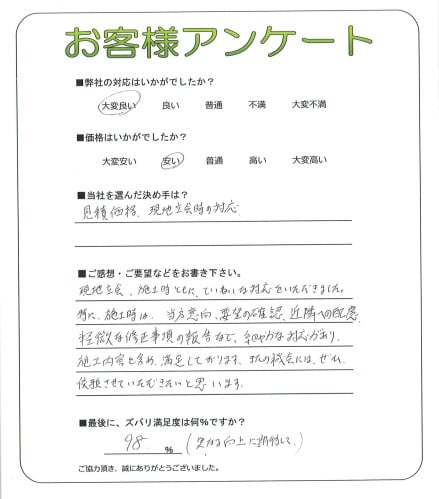 お客様アンケート
■弊社の対応はいかがでしたか?
大変良い 良い 普通 不満 大変不満
■価格はいかがでしたか?
大変安い 安い 普通 高い 大変高い
■当社を選んだ決め手は?
見積価格、現地立会時の対応
■ご感想・ご要望などをお書き下さい。
現地立会、施工時ともに、ていねいな対応をいただきました。
特に、施工時は、当方意向、要望の確認、近隣への配慮、
軽微な修正事項の報告など、細やかな対応があり、
施工内容を含め、満足しております。またの機会には、ぜひ、
依頼させていただきたいと思います。
■最後に、ズバリ満足度は何%ですか?
98 % (更なる向上に期待して。)
ご協力頂き、誠にありがとうございました。